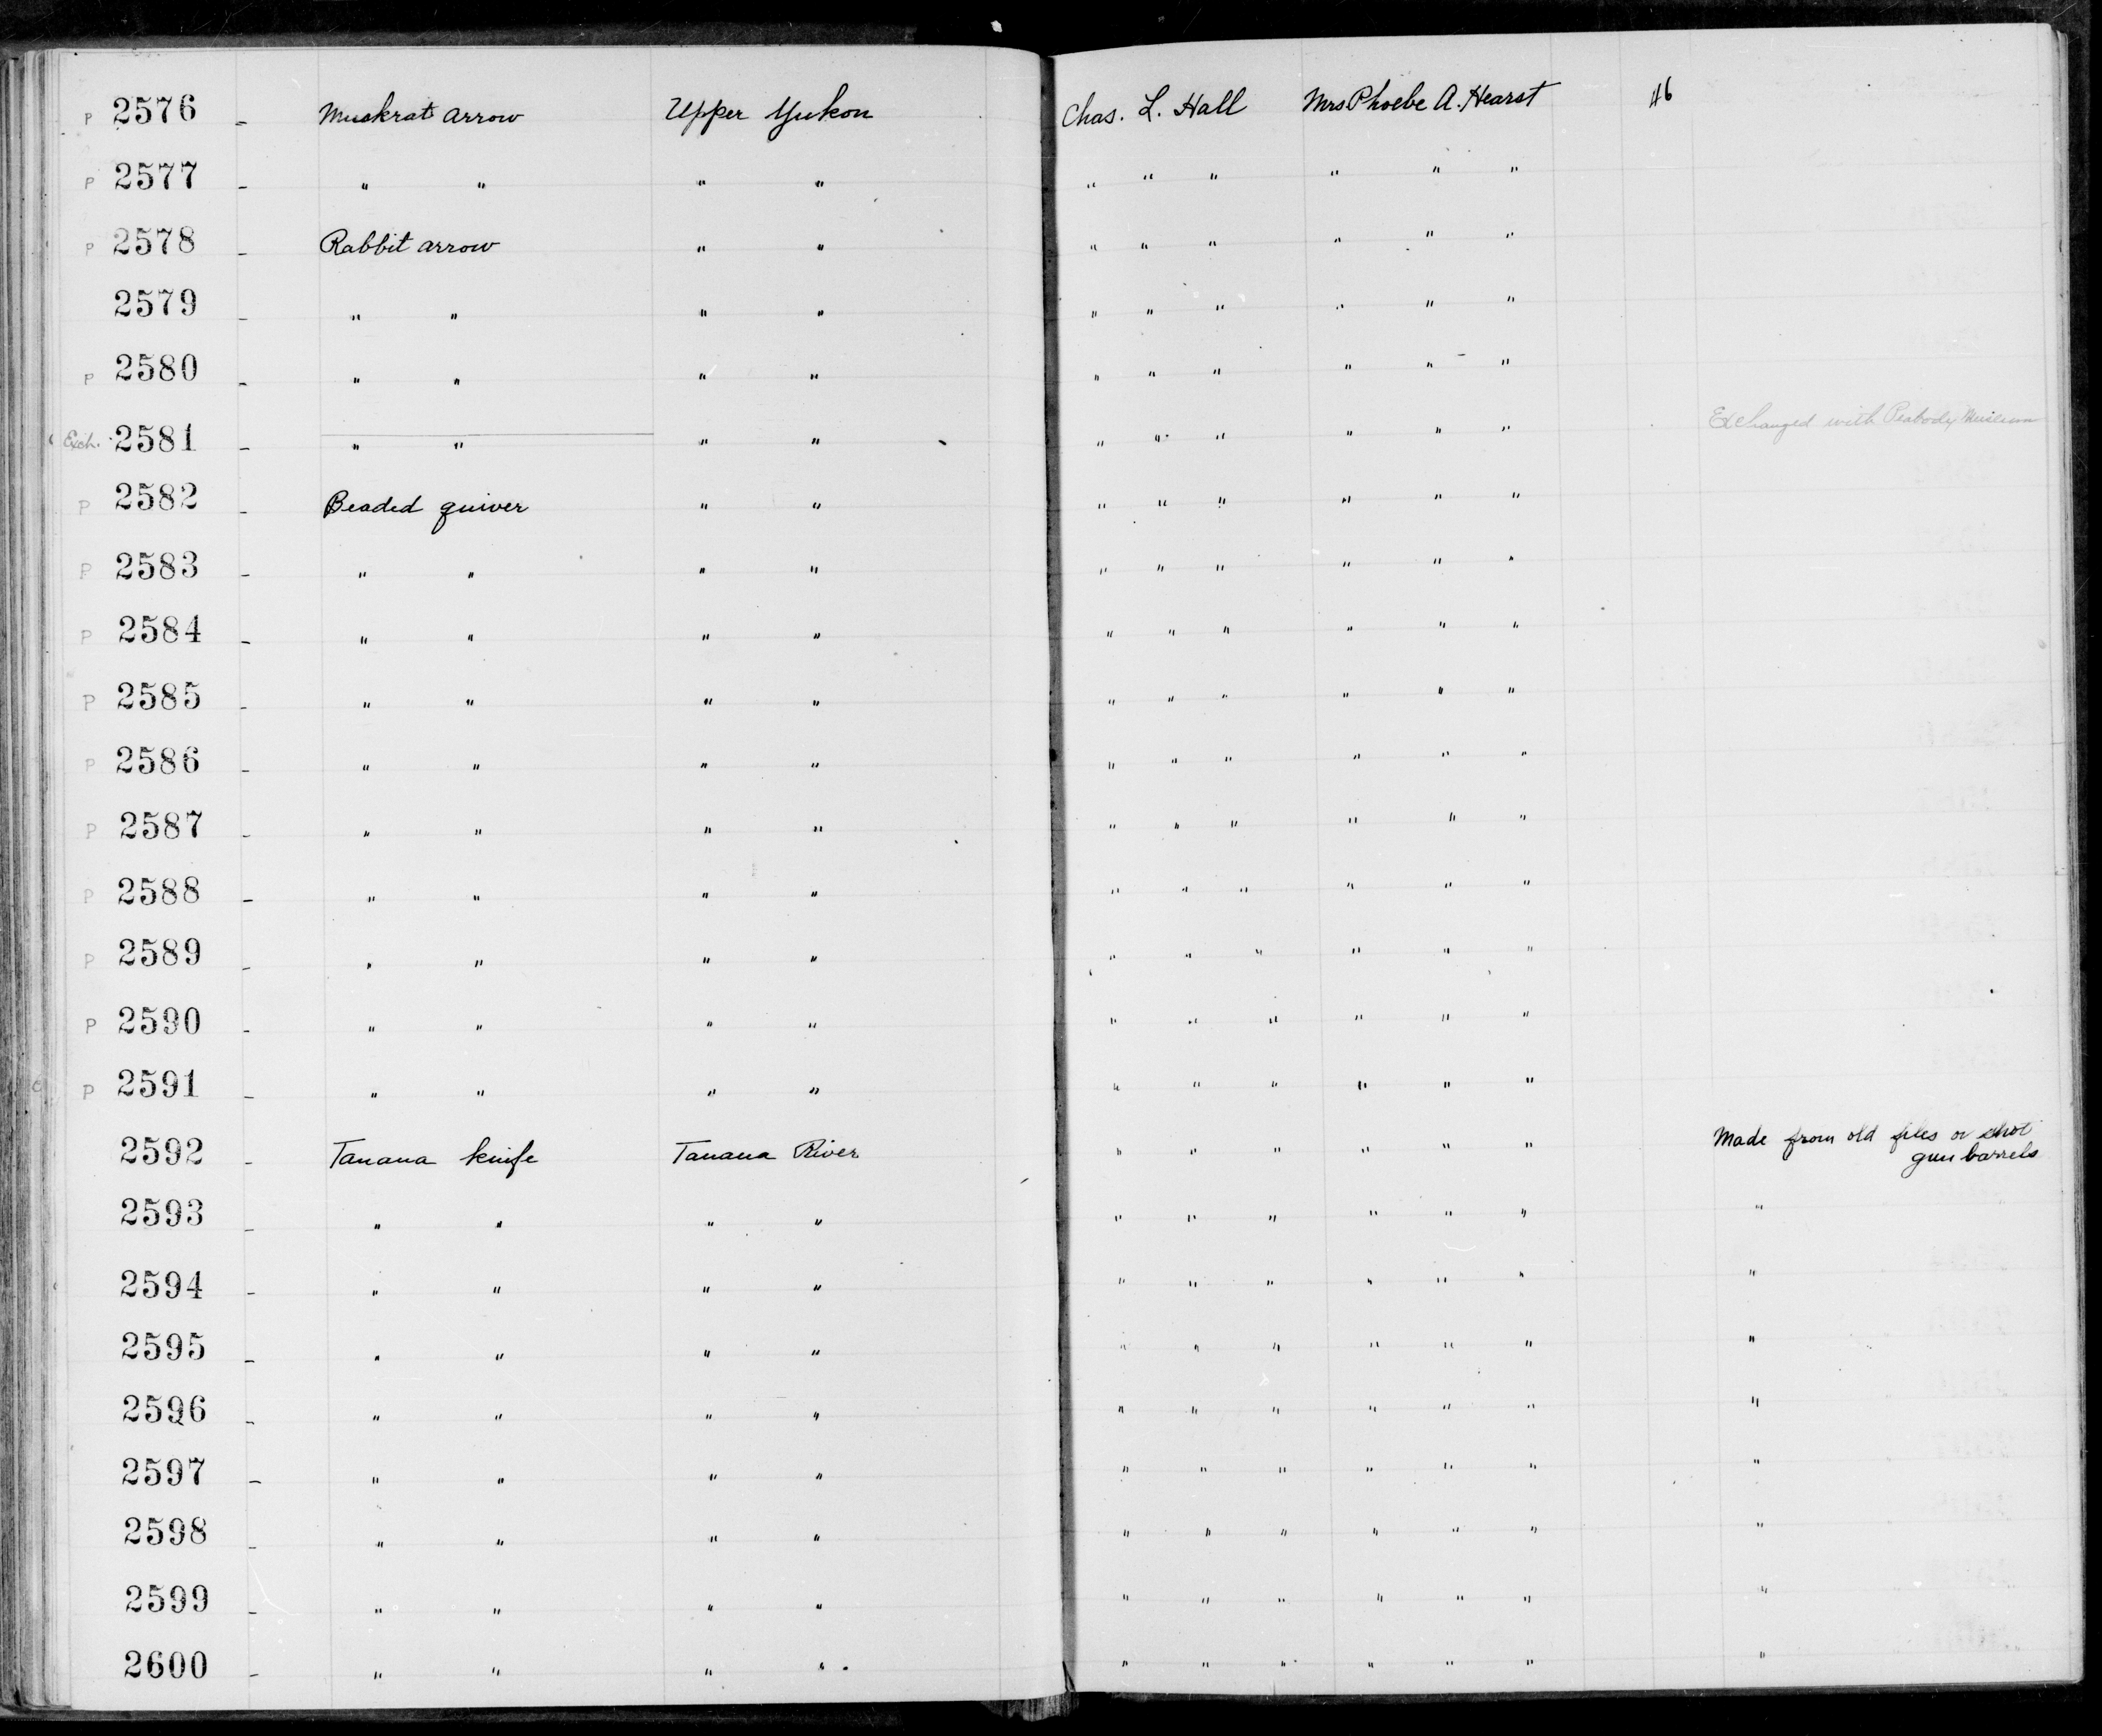 P 2576 - Muskrat arrow Upper Yukon Chas. L. Hall Mrs Phoebe A. Hearst 46
P 2577 - " " " " " " " " " "
P 2578 - Rabbit arrow " " " " " " " "
2579 - " " " " " " " " " "
P 2580 - " " " " " " " " " "
Exch. 2581 - " " " " " " " " " " Exchanged with Peabody Museum
P 2582 - Beaded quiver " " " " " " " "
P 2583 - " " " " " " " " " "
P 2584 - " " " " " " " " " "
P 2585 - " " " " " " " " " "
P 2586 - " " " " " " " " " "
P 2587 - " " " " " " " " " "
P 2588 - " " " " " " " " " "
P 2589 - " " " " " " " " " "
P 2590 - " " " " " " " " " "
P 2591 - " " " " " " " " " "
2592 - Tanana knife Tanana River " " " " " " Made from old files or shot
gun barrels
2593 - " " " " " " " " " " "
2594 - " " " " " " " " " " "
2595 - " " " " " " " " " " "
2596 - " " " " " " " " " " "
2597 - " " " " " " " " " " "
2598 - " " " " " " " " " " "
2599 - " " " " " " " " " " "
2600 - " " " " " " " " " " "